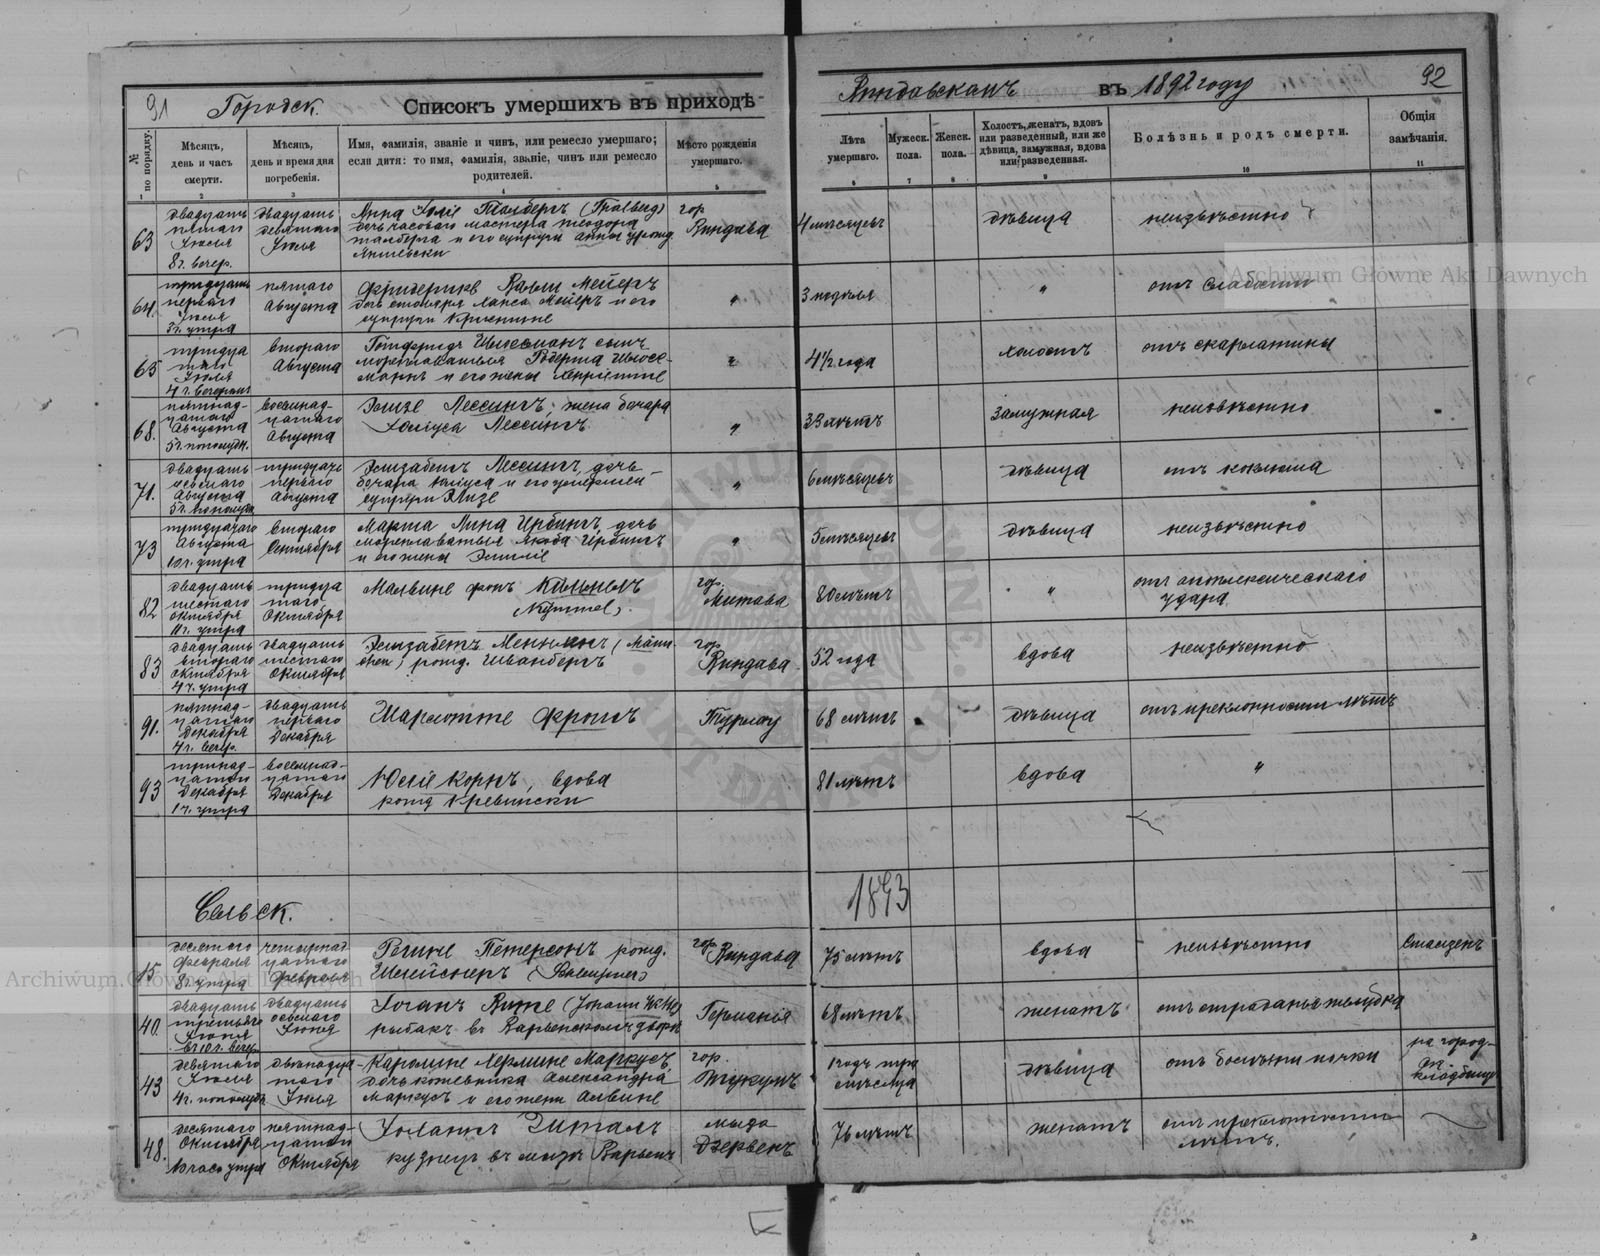 91
Городск.
Списокъ умершихъ въ приходѣ
Виндавскомъ
въ 1892 году
92
№ по порядку.
Мѣсяцъ, день и часъ смерти.
Мѣсяцъ, день и время дня погребенія.
Имя, фамилія, званіе и чинъ, или ремесло умершаго;
если дитя: то имя, фамилія, званіе, чинъ или ремесло
родителей.
Мѣсто рожденія умершаго.
Лѣта умершаго.
Мужеск. пола.
Женск. пола.
Холостъ, женатъ, вдовъ
или разведенный, или же
дѣвица, замужная, вдова
или разведенная.
Болѣзнь и родъ смерти.
Общія замѣчанія.
1
2
3
4
5
6
7
8
9
10
11
63
двадцать
пятаго
Іюля
8 ч. вечер.
двадцать
девятаго
Іюля
Анна Юлiе Талбергъ (Thalberg)
дочь часоваго мастера Теодора
Талберга и его супруги Анны урожд.
гор.
Виндава
4 мѣсяцевъ
дѣвица
неизвѣстно
64.
тридцать
перваго
Іюля
3 ч. утра
пятаго
Августа
Мейеръ
дочь столяра Ханса Мейеръ и его
супруги Кристине
"
3 недѣли
"
отъ слабости
65
тридца
таго
Іюля
4 ч. вечеромъ
втораго
Августа
сынъ
мореплавателя Роберта
и его жены Генріетте
4½ года
холостъ
отъ скарлатины
68.
пятнад-
цатаго
Августа
5 ч. пополудн.
восемнад-
цатаго
Августа
Элизе Лессингъ, жена бочара
Юліуса Лессингъ.
"
33 лѣтъ
замужная
неизвѣстно
71.
двадцать
Августа
5 ч. пополудн.
тридцать
перваго
Августа
Элизабетъ Лессингъ, дочь
бочара Юліуса и его умершей
супруги Элизе
"
6 мѣсяцевъ
дѣвица
отъ коклюша
73
тридцатаго
Августа
10 ч. утра
втораго
Сентября
Марта Лина Ирбингъ, дочь
мореплавателя Якоба Ирбингъ
и его жены Эмиліе
"
5 мѣсяцевъ
дѣвица
неизвѣстно
82
двадцать
шестаго
Октября
11 ч. утра
тридца
таго
Октября
Мальвине фонъ
гор.
Митава
80 лѣтъ
"
отъ апоплексическаго
удара
83
двадцать
втораго
Октября
4 ч. утра
двадцать
шестаго
Октября
Элизабетъ
рожд. Шванбергъ
гор.
Виндава
52 года
вдова
неизвѣстно
91.
пятнад-
цатаго
Декабря
4 ч. вечер.
двадцать
перваго
Декабря
Шарлотте Фромъ
68 лѣтъ
дѣвица
отъ преклонности лѣтъ
93
тринад-
цатаго
Декабря
1 ч. утра
восемнад-
цатаго
Декабря
Юліе Корнъ, вдова
рожд. Кревински
81 лѣтъ
вдова
"
Сельск.
1893
15
десятаго
Февраля
8 ч. утра
четырнад-
цатаго
Февраля
Регине Петерсонъ рожд.
Шлейснеръ
гор. Виндава
75 лѣтъ
вдова
неизвѣстно
40.
двадцать
третьяго
Іюня
въ 10 ч. вечер.
двадцать
осьмаго
Іюня
Іоганъ Витте
рыбакъ въ
Германія
68 лѣтъ
женатъ
отъ страданья желудка
43
девятаго
Іюля
4 ч. пополудн.
двѣнадца-
таго
Іюля
Каролине Гермине Маркусъ,
дочь кожевника Александра
Маркусъ и его жены Альвине
гор.
Тукумъ
1 годъ три
мѣсяца
дѣвица
отъ болѣзни почки
на город-
ск.
кладбище
48.
десятаго
Октября
пятнад-
цатаго
Октября
Іоганъ
кузнецъ въ мызѣ
мыза
76 лѣтъ
женатъ
отъ преклонности
лѣтъ.
Archiwum Główne Akt Dawnych
Archiwum Główne Akt Dawnych